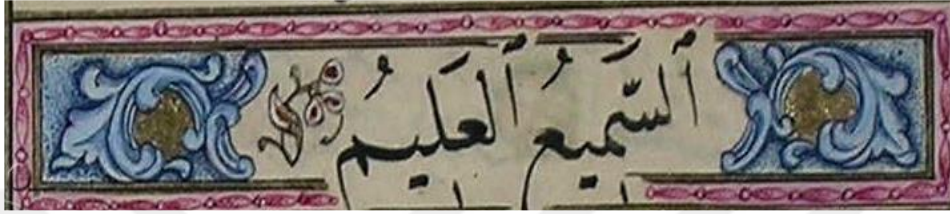 ٱلسَّمِيعُ ٱلْعَلِيمُ